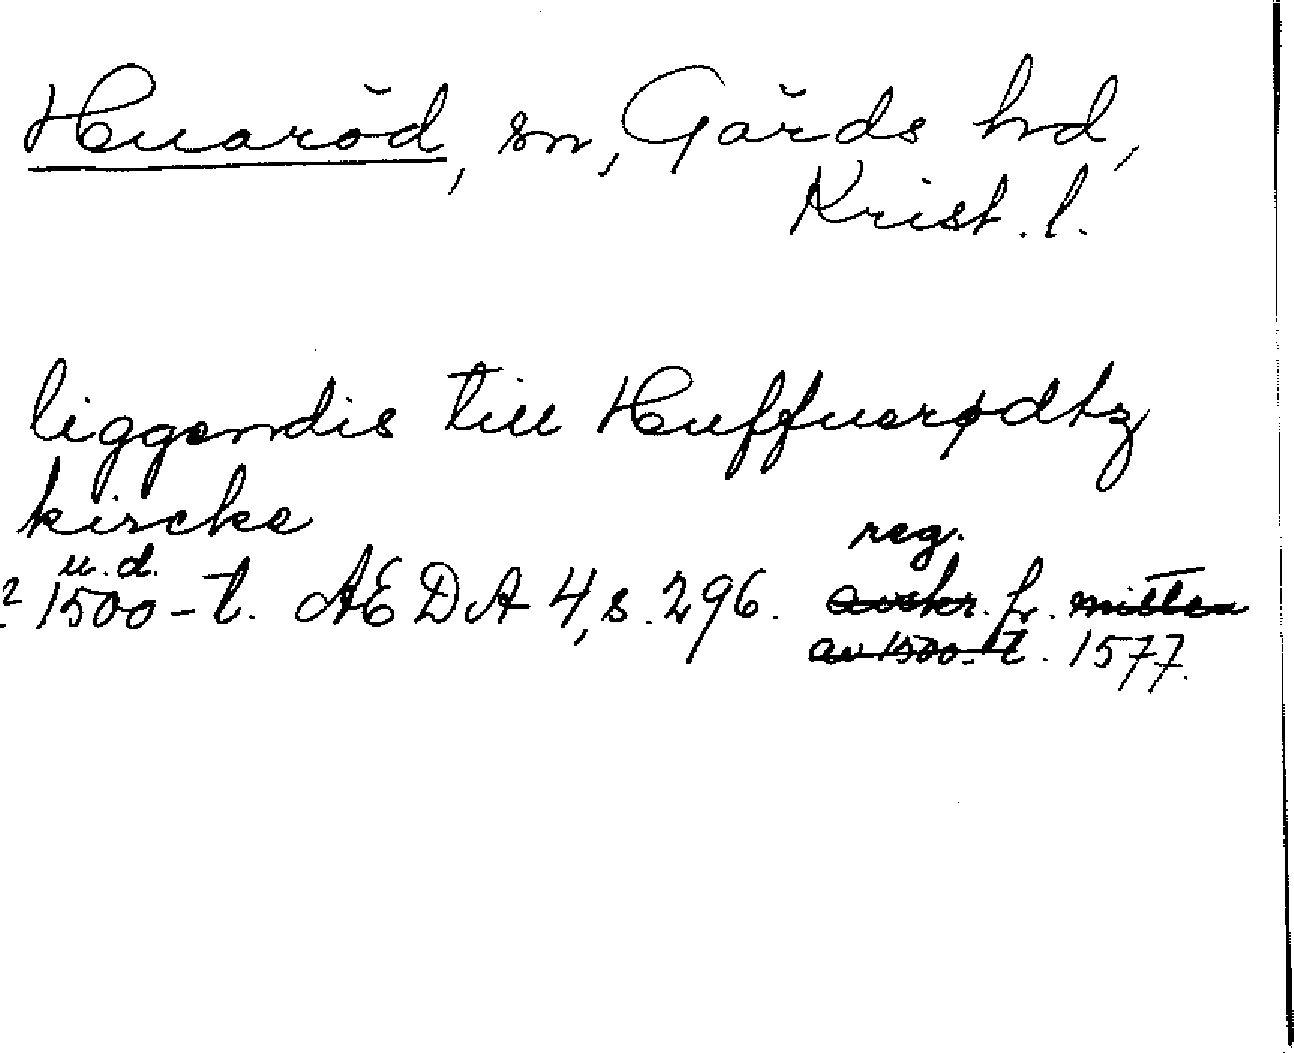 Huaröd, sn, Gärds hd,
Krist. l.
liggendis till Huffuerødtz
kircke
u. d.
? 1500-t. AEDA 4, s. 296. reg.
avskr. fr. mitten
av 1500-t. 1577.